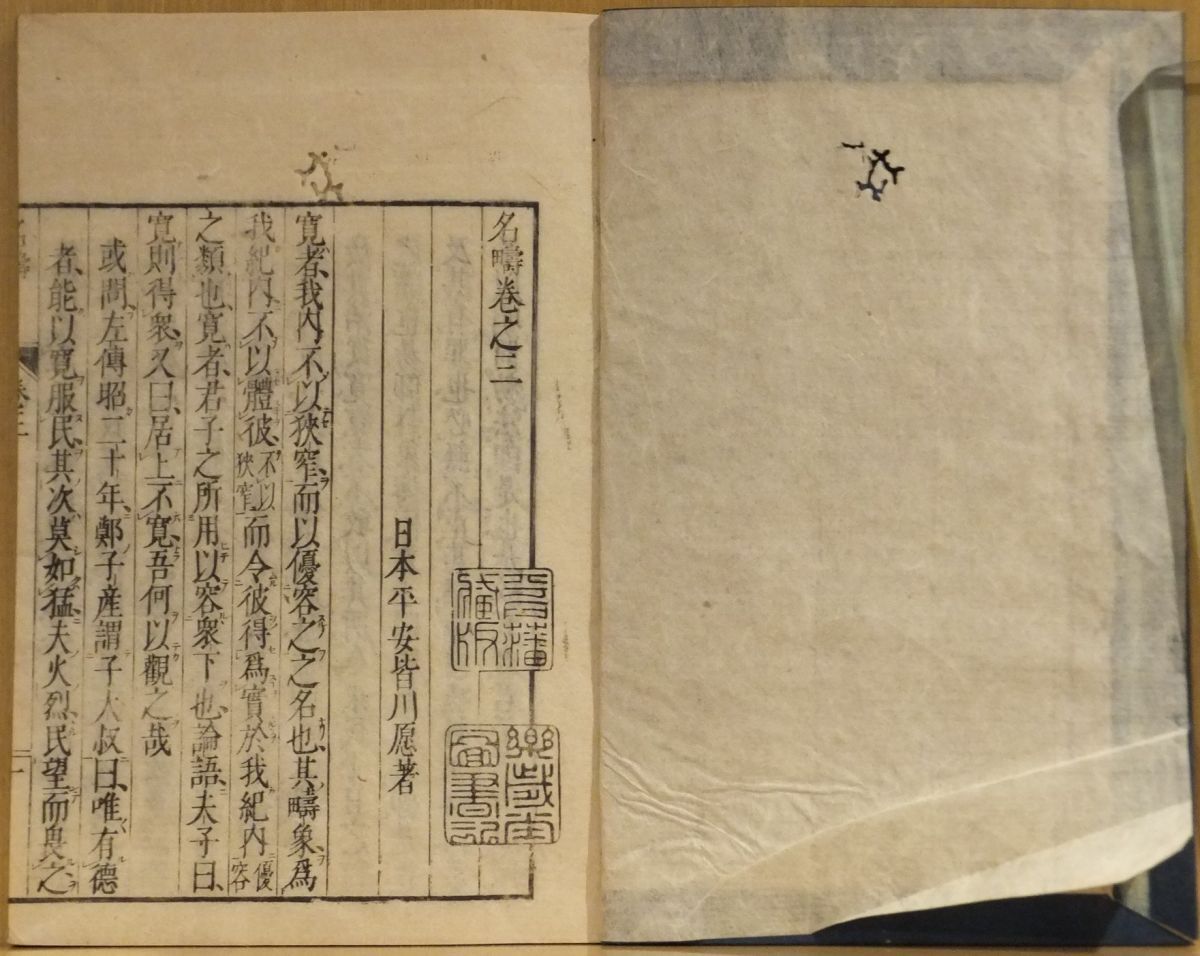 名疇卷之三
日本平安皆川愿著
寛者、我内不以狹窄、而以優容之之名也、其疇象、爲
我紀内、不以體彼不以狹窄而令彼得爲實於我紀内優容
之類也、寛者、君子之所用以容衆下也、論語、夫子曰、
寛則得衆、又曰、居上不寛、吾何以觀之哉
或問、左傳昭二十年、鄭子產謂子大叔曰、唯有德
者、能以寛服民、其次莫如猛、夫火烈、民望而畏之、